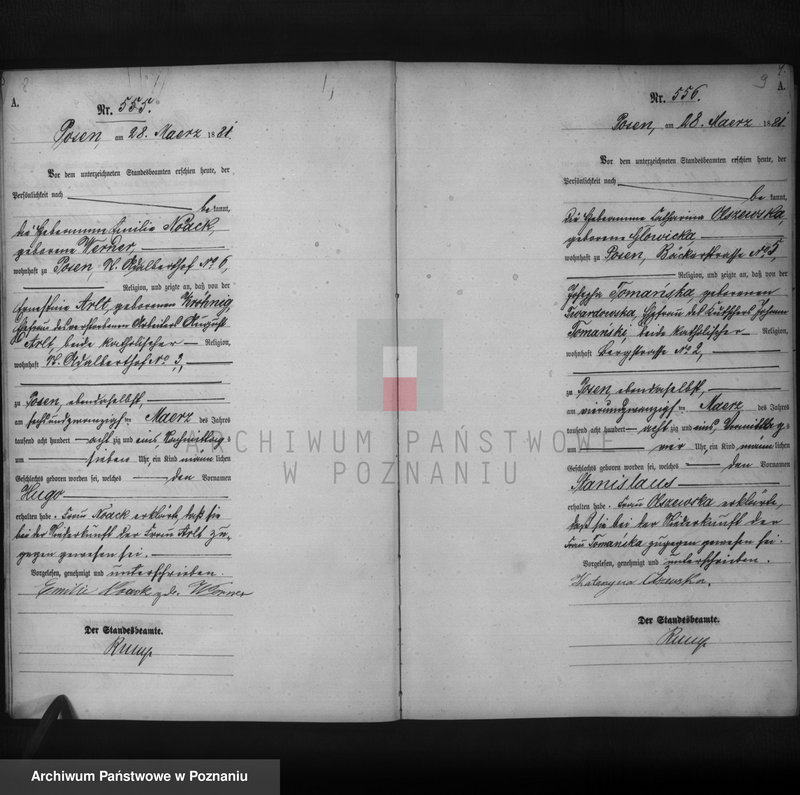 8
1,
A.
Nr. 555.
Posen, am 28. Maerz 1881.
Vor dem unterzeichneten Standesbeamten erschien heute, der
Persönlichkeit nach
be kannt,
die Hebamme Emilie Noack,
geborene Werner,
wohnhaft zu Posen, St. Adalberthof No 6,
Religion, und zeigte an, daß von der
Ernestine Arlt, geborenen
Ehefrau des verstorbenen Arbeiters August
Arlt, beide katholischer Religion,
wohnhaft St. Adalberthof No 3,
zu Posen, ebendaselbst,
am sechsundzwanzigsten Maerz des Jahres
tausend acht hundert acht zig und eins Nachmittags
um sieben Uhr, ein Kind männ lichen
Geschlechts geboren worden sei, welches den Vornamen
Hugo
erhalten habe. Frau Noack erklärte, daß sie
bei der Niederkunft der Frau Arlt zu-
gegen gewesen sei.
Vorgelesen, genehmigt und unterschrieben.
Emilie Noack geb. Werner
Der Standesbeamte.
9
A.
Nr. 556.
Posen, am 28. Maerz 1881.
Vor dem unterzeichneten Standesbeamten erschien heute, der
Persönlichkeit nach
be kannt,
die Hebamme Catharina Olszewska,
geborene Glowicka,
wohnhaft zu Posen, Bäckerstrasse No 5,
Religion, und zeigte an, daß von der
Josepha Tomańska, geborenen
Twardowska, Ehefrau des Kutschers Johann
Tomański, beide katholischer Religion,
wohnhaft Bergstrasse No 2,
zu Posen, ebendaselbst,
am vierundzwanzigsten Maerz des Jahres
tausend acht hundert acht zig und eins Vormittags
um vier Uhr, ein Kind männ lichen
Geschlechts geboren worden sei, welches den Vornamen
Stanislaus
erhalten habe. Frau Olszewska erklärte,
daß sie bei der Niederkunft der
Frau Tomańska zugegen gewesen sei.
Vorgelesen, genehmigt und unterschrieben.
Katarzyna
Der Standesbeamte.
ARCHIWUM PAŃSTWOWE
W POZNANIU
Archiwum Państwowe w Poznaniu